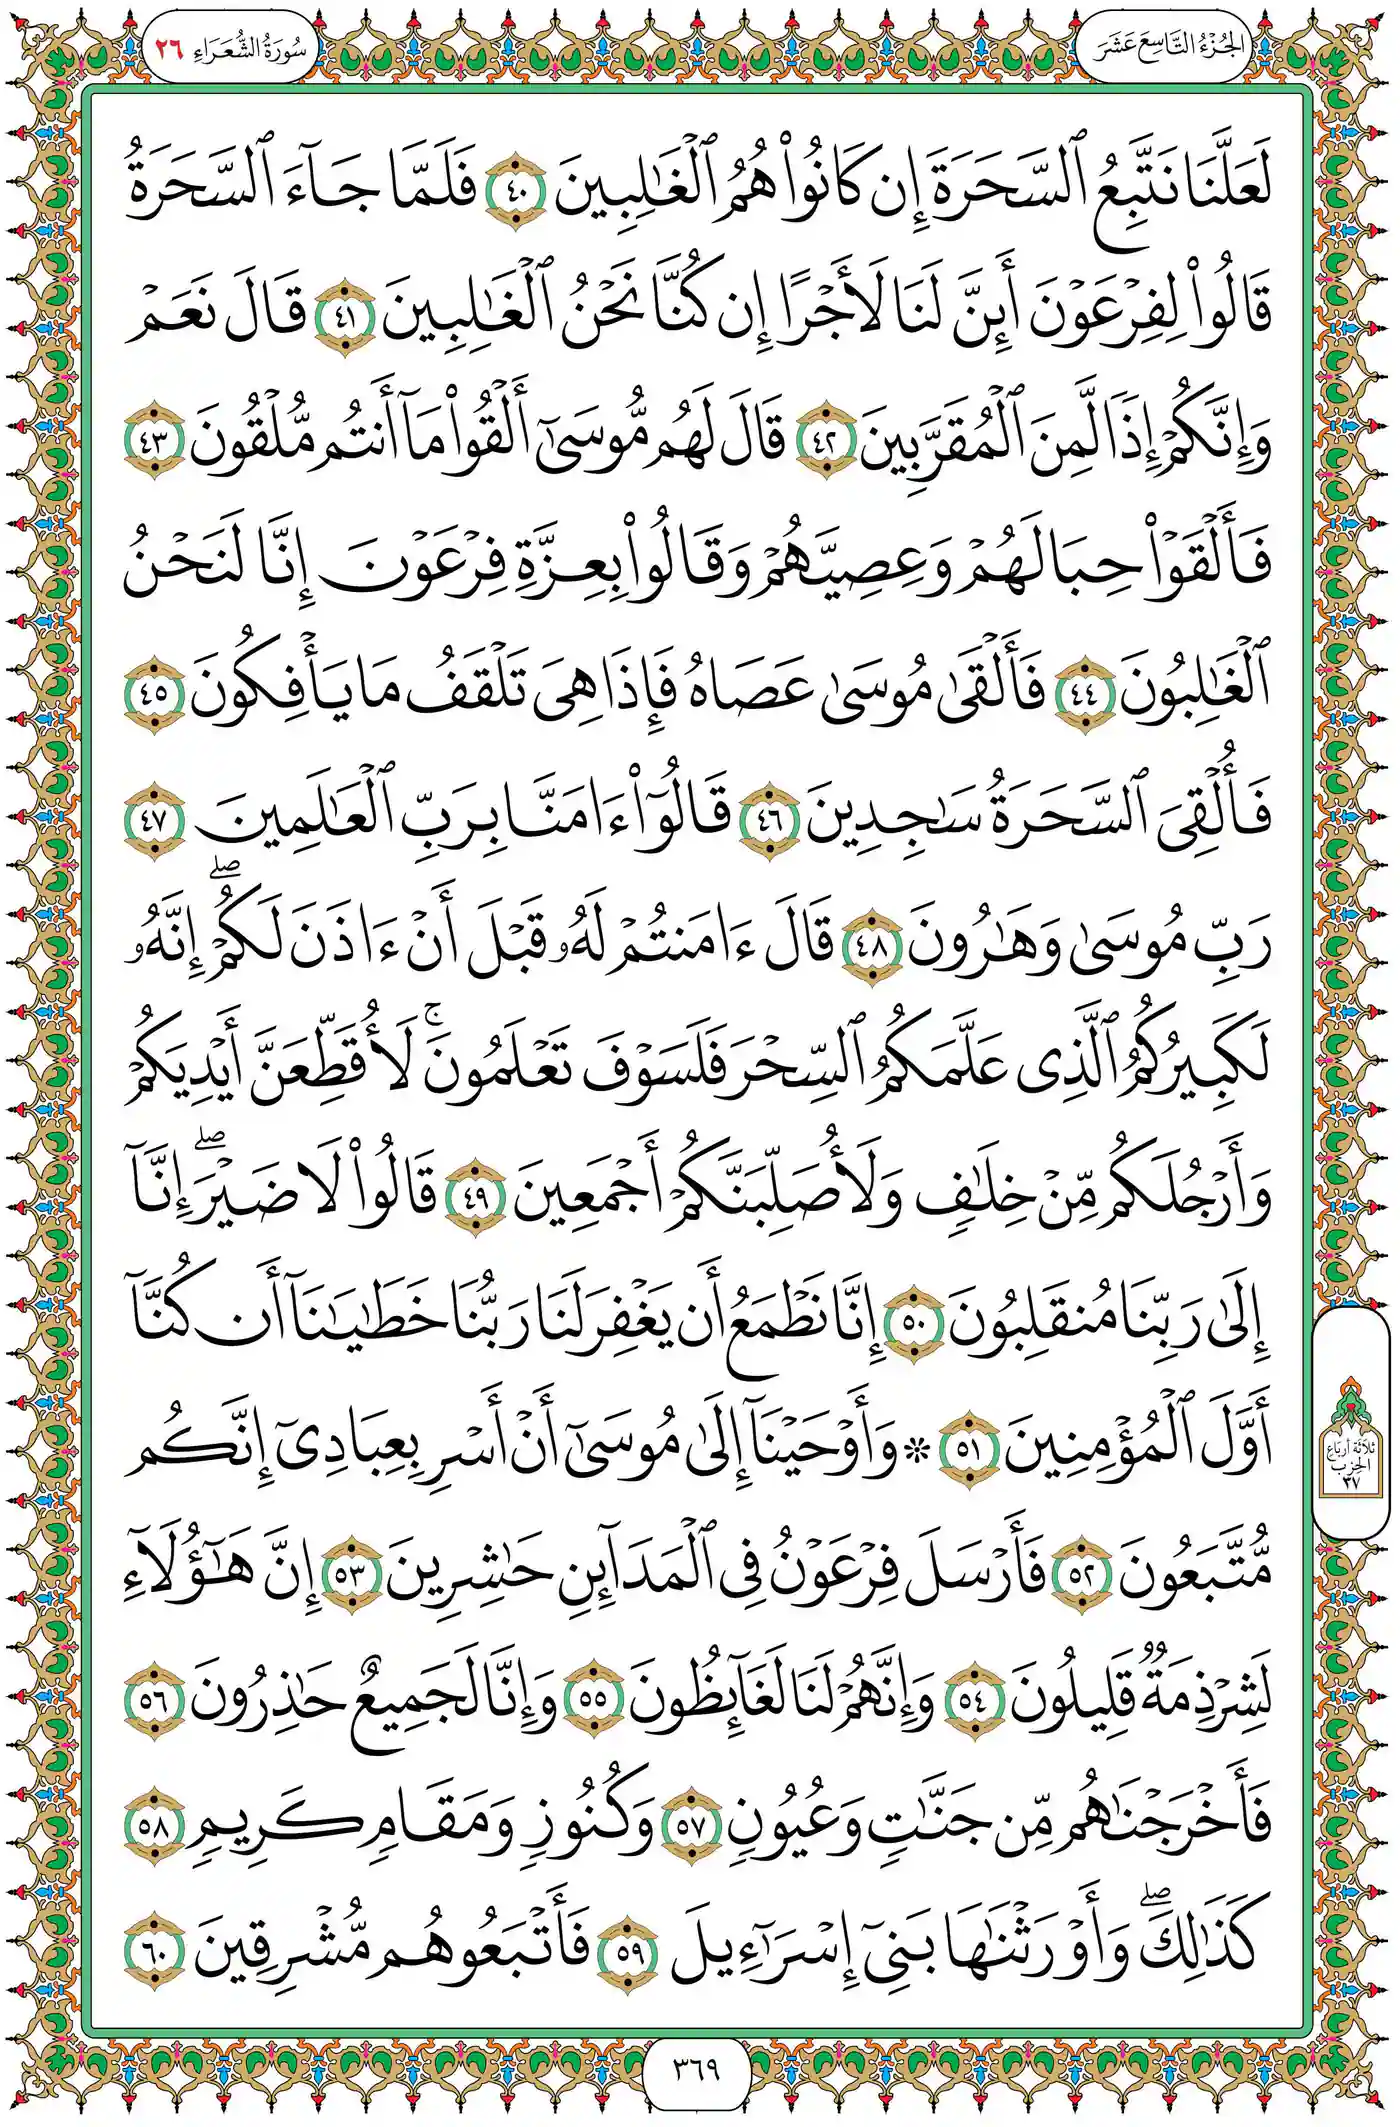 الجُزْءُ التَّاسِعَ عَشَرَ
سُورَةُ الشُّعَرَاءِ ٢٦
لَعَلَّنَا نَتَّبِعُ ٱلسَّحَرَةَ إِن كَانُوا۟ هُمُ ٱلْغَٰلِبِينَ ٤٠ فَلَمَّا جَآءَ ٱلسَّحَرَةُ
قَالُوا۟ لِفِرْعَوْنَ أَئِنَّ لَنَا لَأَجْرًا إِن كُنَّا نَحْنُ ٱلْغَٰلِبِينَ ٤١ قَالَ نَعَمْ
وَإِنَّكُمْ إِذًا لَّمِنَ ٱلْمُقَرَّبِينَ ٤٢ قَالَ لَهُم مُّوسَىٰٓ أَلْقُوا۟ مَآ أَنتُم مُّلْقُونَ ٤٣
فَأَلْقَوْا۟ حِبَالَهُمْ وَعِصِيَّهُمْ وَقَالُوا۟ بِعِزَّةِ فِرْعَوْنَ إِنَّا لَنَحْنُ
ٱلْغَٰلِبُونَ ٤٤ فَأَلْقَىٰ مُوسَىٰ عَصَاهُ فَإِذَا هِىَ تَلْقَفُ مَا يَأْفِكُونَ ٤٥
فَأُلْقِىَ ٱلسَّحَرَةُ سَٰجِدِينَ ٤٦ قَالُوٓا۟ ءَامَنَّا بِرَبِّ ٱلْعَٰلَمِينَ ٤٧
رَبِّ مُوسَىٰ وَهَٰرُونَ ٤٨ قَالَ ءَامَنتُمْ لَهُۥ قَبْلَ أَنْ ءَاذَنَ لَكُمْ ۖ إِنَّهُۥ
لَكَبِيرُكُمُ ٱلَّذِى عَلَّمَكُمُ ٱلسِّحْرَ فَلَسَوْفَ تَعْلَمُونَ ۚ لَأُقَطِّعَنَّ أَيْدِيَكُمْ
وَأَرْجُلَكُم مِّنْ خِلَٰفٍ وَلَأُصَلِّبَنَّكُمْ أَجْمَعِينَ ٤٩ قَالُوا۟ لَا ضَيْرَ ۖ إِنَّآ
إِلَىٰ رَبِّنَا مُنقَلِبُونَ ٥٠ إِنَّا نَطْمَعُ أَن يَغْفِرَ لَنَا رَبُّنَا خَطَٰيَٰنَآ أَن كُنَّآ
أَوَّلَ ٱلْمُؤْمِنِينَ ٥١ * وَأَوْحَيْنَآ إِلَىٰ مُوسَىٰٓ أَنْ أَسْرِ بِعِبَادِىٓ إِنَّكُم
مُّتَّبَعُونَ ٥٢ فَأَرْسَلَ فِرْعَوْنُ فِى ٱلْمَدَآئِنِ حَٰشِرِينَ ٥٣ إِنَّ هَٰٓؤُلَآءِ
لَشِرْذِمَةٌ قَلِيلُونَ ٥٤ وَإِنَّهُمْ لَنَا لَغَآئِظُونَ ٥٥ وَإِنَّا لَجَمِيعٌ حَٰذِرُونَ ٥٦
فَأَخْرَجْنَٰهُم مِّن جَنَّٰتٍ وَعُيُونٍ ٥٧ وَكُنُوزٍ وَمَقَامٍ كَرِيمٍ ٥٨
كَذَٰلِكَ ۖ وَأَوْرَثْنَٰهَا بَنِىٓ إِسْرَٰٓءِيلَ ٥٩ فَأَتْبَعُوهُم مُّشْرِقِينَ ٦٠
ثَلَاثَةُ أَرْبَاع
الحِزْب
٣٧
٣٦٩